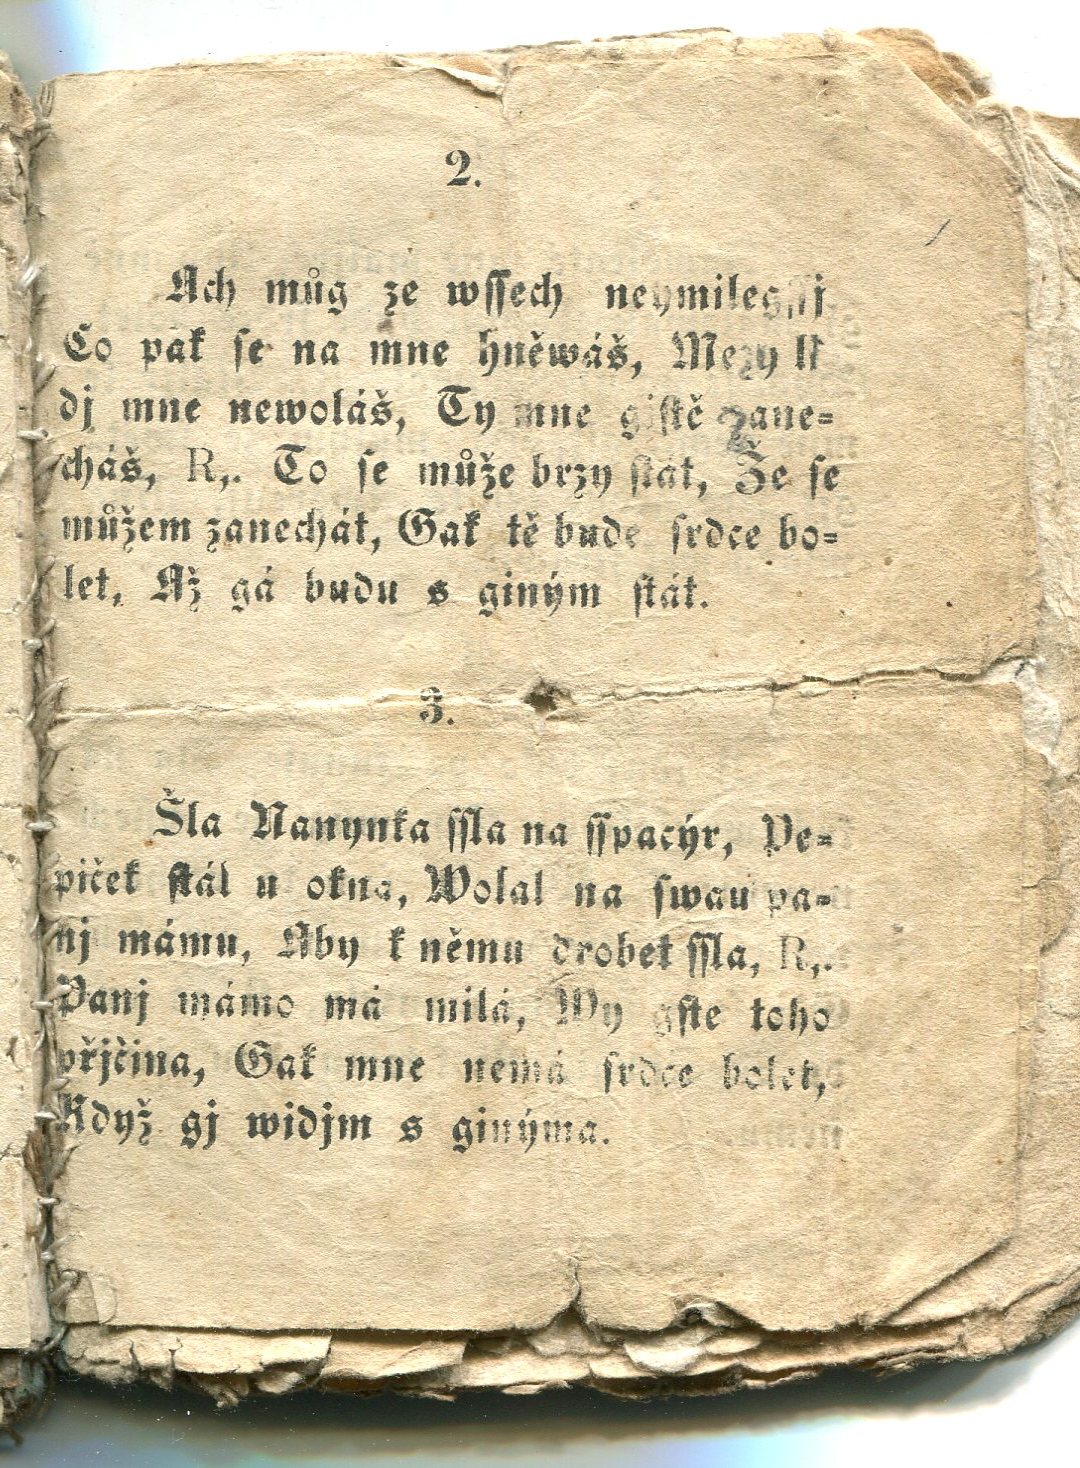 2.
Ach můg ze wſſech neymilegſſj
Co pak ſe na mne hněwáš, Mezy li
dj mne newoláš, Ty mne giſtě zane=
cháš, R,. To ſe může brzy ſtát, Že ſe
můžem zanechát, Gak tě bude ſrdce bo=
let, Až gá budu s giným ſtát.
3.
Šla Nanynka ſſla na ſſpacýr, Pe=
piček ſtál u okna, Wolal na ſwau pa=
nj mámu, Aby k němu drobet ſſla, R,.
Panj mámo má milá, Wy gſte toho
přjčina, Gak mne nemá ſrdce bolet,
Když gj widjm s ginýma.